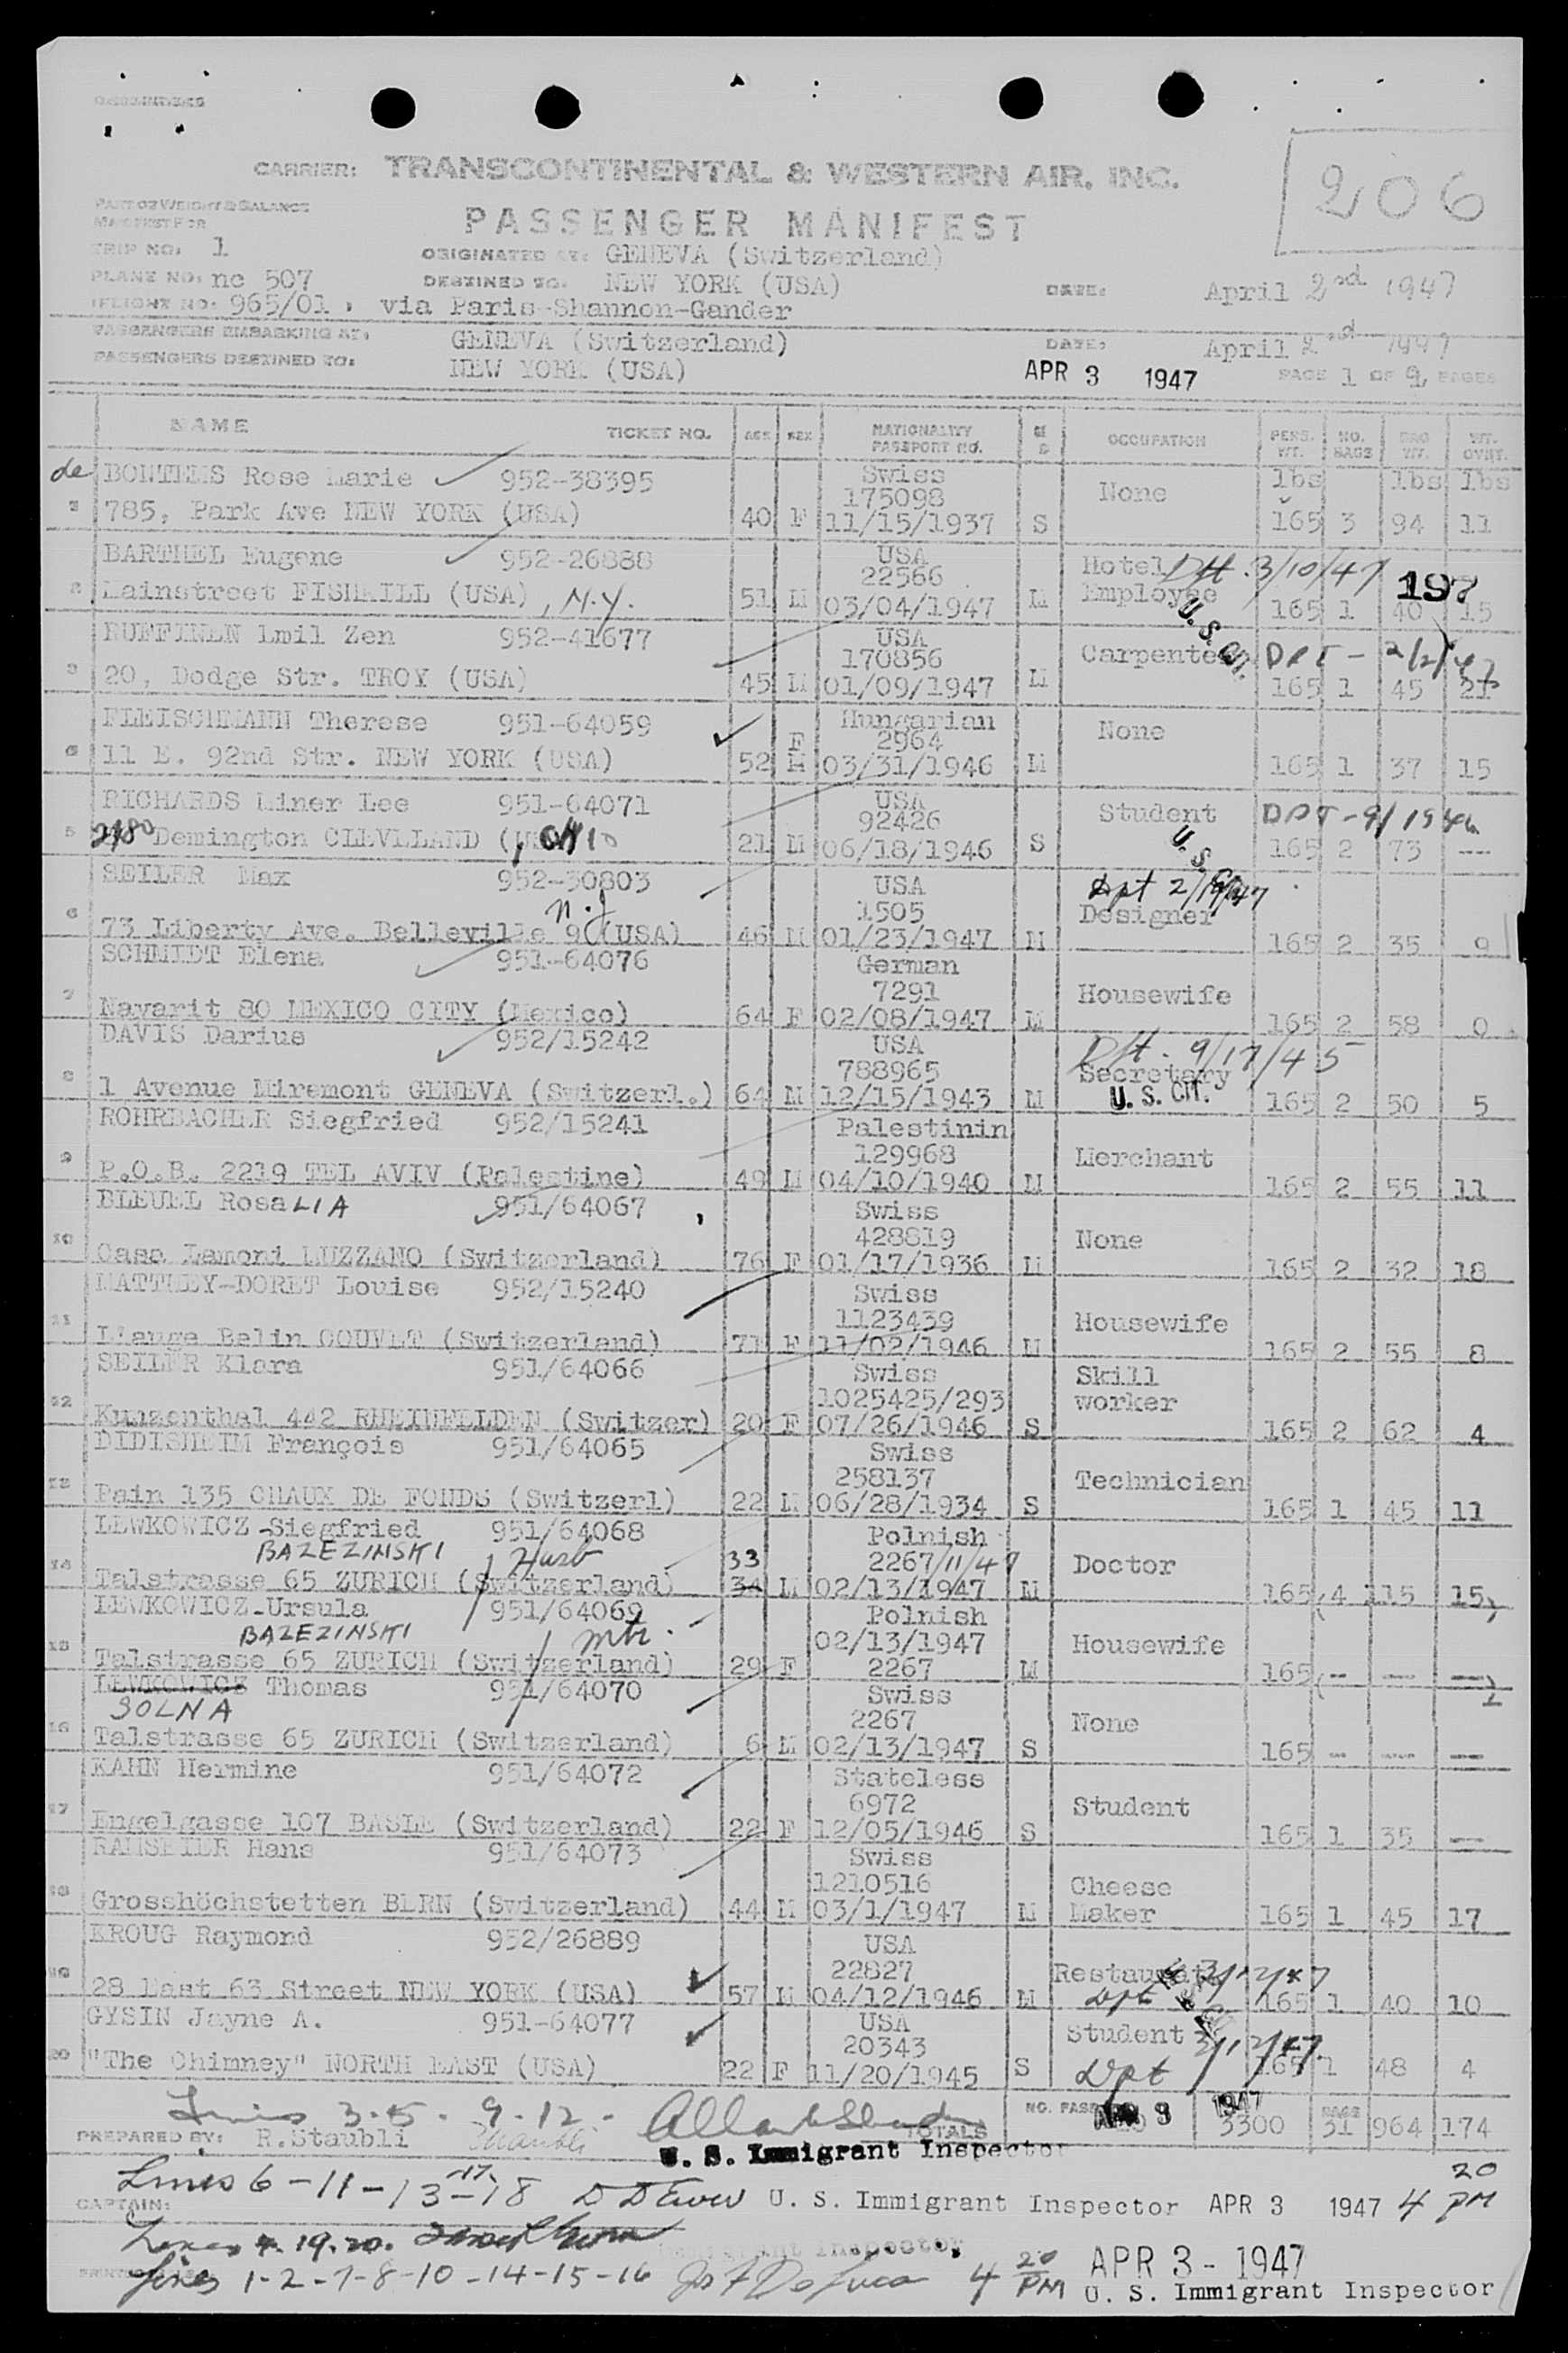 CARRIER: TRANSCONTINENTAL & WESTERN AIR, INC.
206
PART OF WEIGHT & BALANCE
MANIFEST FOR
PASSENGER MANIFEST
TRIP NO: 1
ORIGINATED AT: GENEVA (Switzerland)
PLANE NO: nc 507
DESTINED TO: NEW YORK (USA)
DATE: April 2nd 1947
FLIGHT NO: 965/01, via Paris-Shannon-Gander
PASSENGERS EMBARKING AT: GENEVA (Switzerland)
DATE: April 2nd 1947
PASSENGERS DESTINED TO: NEW YORK (USA)
APR 3 1947
PAGE 1 OF PAGES
NAME TICKET NO. AGE SEX NATIONALITY PASSPORT NO. OCCUPATION PERS. WT. NO. BAGS BAG WT. WT. OVRT.
de Rose Marie 952-38395 Swiss None lbs lbs lbs
175098
785, Park Ave NEW YORK (USA) 40 F 11/15/1937 S 165 3 94 11
BARTHEL Eugene 952-26888 USA Hotel Dft. 3/10/47
22566 197
2 Mainstreet FISHKILL (USA), N.Y. 51 M 03/04/1947 M Employee 165 1 40 15
U.S. Cit.
RUFFINEN Emil Zen 952-41677 USA
170856 Carpenter DPT - 2/2/47
3 20, Dodge Str. TROY (USA) 45 M 01/09/1947 M 165 1 45 21
FLEISCHMANN Therese 951-64059 Hungarian
F 2964 None
11 E. 92nd Str. NEW YORK (USA) 52 M 03/31/1946 M 165 1 37 15
RICHARDS Miner Lee 951-64071 USA
92426 Student DPT-9/1946
5 2480 Demington CLEVELAND OHIO 21 M 06/18/1946 S 165 2 73 ---
U.S.
SEILER Max 952-30803 USA Dpt 2/19/47
N.J 1505 Designer
6 73 Liberty Ave. Belleville 9 (USA) 46 M 01/23/1947 M 165 2 35 9
SCHMIDT Elena 951-64076 German
7291 Housewife
7 Nayarit 80 MEXICO CITY (Mexico) 64 F 02/08/1947 M 165 2 58 0
DAVIS Darius 952/15242 USA Dft. 9/17/45
788965 Secretary
8 1 Avenue Miremont GENEVA (Switzerl.) 64 M 12/15/1943 M U. S. CIT. 165 2 50 5
ROHRBACHER Siegfried 952/15241 Palestinin
129968 Merchant
9 P.O.B. 2219 TEL AVIV (Palestine) 49 M 04/10/1940 M 165 2 55 11
BLEUEL RosaLIA 951/64067 Swiss
428819 None
10 Casa Lamoni MUZZANO (Switzerland) 76 F 01/17/1936 M 165 2 32 18
MATTHEY-DORET Louise 952/15240 Swiss
1123439 Housewife
11 Belin COUVET (Switzerland) 71 F 11/02/1946 M 165 2 55 8
SEILER Klara 951/64066 Swiss Skill
1025425/293 worker
12 Kunzenthal 442 RHEINFELDEN (Switzer) 20 F 07/26/1946 S 165 2 62 4
DIDISHEIM François 951/64065 Swiss
258137 Technician
13 Pain 135 CHAUX DE FONDS (Switzerl) 22 M 06/28/1934 S 165 1 45 11
LEWKOWICZ-Siegfried 951/64068 Polnish
BAZEZINSKI / Husb 33 2267/11/47 Doctor
14 Talstrasse 65 ZURICH (Switzerland) 34 M 02/13/1947 M 165 (4 115 15)
LEWKOWICZ-Ursula 951/64069 Polnish
BAZEZINSKI / mtr. 02/13/1947 Housewife
15 Talstrasse 65 ZURICH (Switzerland) 29 F 2267 M 165 (-- --- ---)
LEWKOWICZ Thomas 951/64070 Swiss
SOLNA 2267 None
16 Talstrasse 65 ZURICH (Switzerland) 6 M 02/13/1947 S 165 -- --- ---
KAHN Hermine 951/64072 Stateless
6972 Student
17 Engelgasse 107 BASLE (Switzerland) 22 F 12/05/1946 S 165 1 35 ---
RAMSEIER Hans 951/64073 Swiss
1210516 Cheese
18 Grosshöchstetten BERN (Switzerland) 44 M 03/1/1947 M Maker 165 1 45 17
KROUG Raymond 952/26889 USA
22827
28 East 63 Street NEW YORK (USA) 57 M 04/12/1946 M Dpt 165 1 40 10
GYSIN Jayne A. 951-64077 USA Student
20343
20 "The Chimney" NORTH EAST (USA) 22 F 11/20/1945 S Dpt 165 1 48 4
Lines 3-5-9-12-
PREPARED BY: R.Staubli TOTALS NO. PASS. APR 3 1947 3300 BAGS 31 964 174
U. S. Immigrant Inspector
Lines 6-11-13-17-18 U. S. Immigrant Inspector APR 3 1947 4 20 PM
CAPTAIN:
Lines 4. 19. 20.
Immigrant Inspector
Lines 1-2-7-8-10-14-15-16 4 20 PM APR 3 - 1947
U. S. Immigrant Inspector